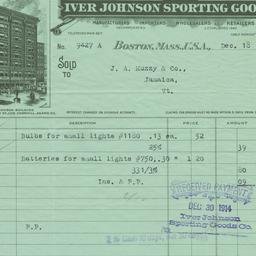 IVER JOHNSON SPORTING GOO
MANUFACTURERS IMPORTERS WHOLESALERS RETAILERS
No. 9427 A BOSTON, MASS., U.S.A., Dec. 18
SOLD TO J. A. Muzzy & Co.,
Jamaica,
Vt.
DESCRIPTION PRICE AMOUNT
Bulbs for small lights #1180 .13 ea. 52
25% 39
Batteries for small lights #750.30 " 1 20
33 1/3% 80
Ins. & P.P. 09
RECEIVED PAYMENT
DEC 30 1914
Iver Johnson
Sporting Goods Co.
P.P.